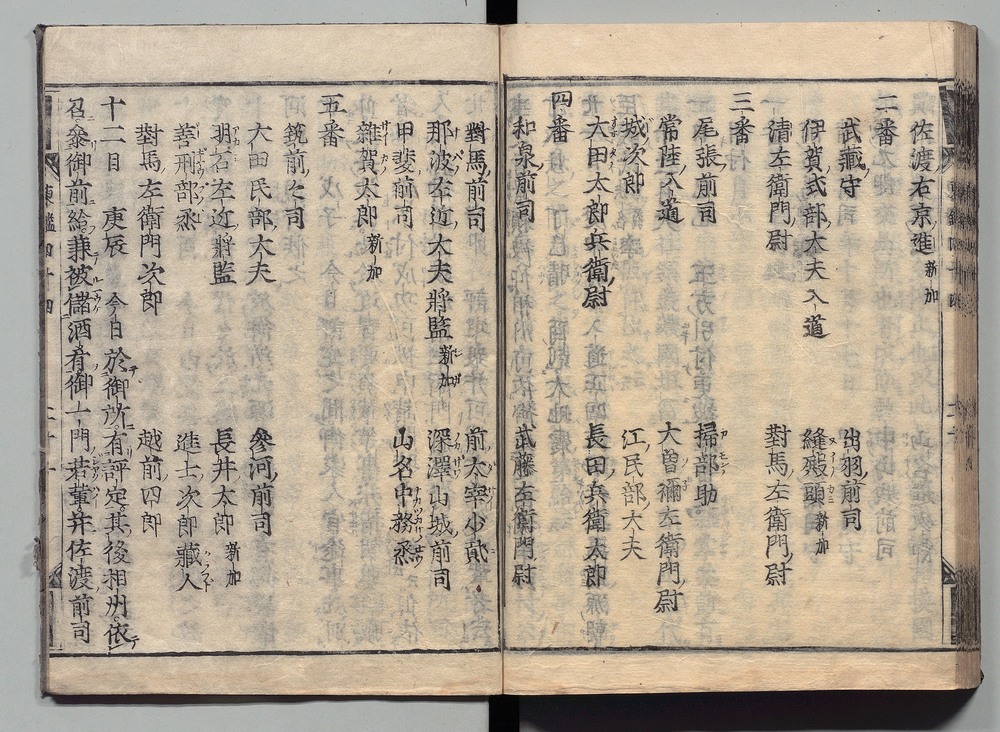 佐渡右京進 新加
二番
武藏守 出羽前司
伊賀式部太夫入道 縫殿頭 新加
清左衛門尉 對馬左衛門尉
三番
尾張前司 掃部助
常陸入道 大曽禰左衛門尉
城次郎 江民部大夫
大田太郎兵衛尉 長田兵衛太郎
四番
和泉前司 武藤左衛門尉
對馬前司 前太宰少貳
那波左近大夫將監 新加 深澤山城前司
甲斐前司 山名中務烝
雜賀太郎 新加
五番
筑前々司 參河前司
大田民部大夫 長井太郎 新加
明石左近將監 進士次郎藏人
善刑部烝 越前四郎
對馬左衛門次郎
十二日 庚辰 今日於御所有評定其後相州依
召參御前給兼被儲酒肴御一門若輩并佐渡前司
東鑑四十四